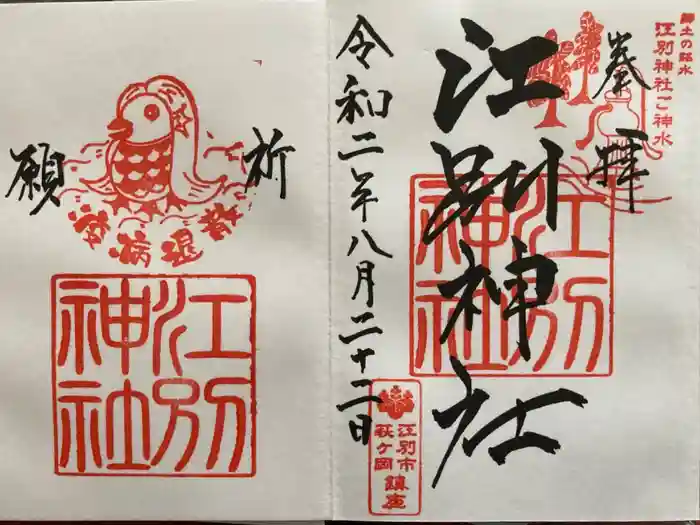 郷土の銘水
江別神社ご神水
奉拝
江別神社
江別神社
令和二年八月二十二日
江別市
萩ケ岡
鎮座
祈願
疫病退散
江別神社